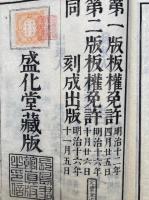 第一版版權免許 明治十二年
四月廿五日
第二版版權免許 明治十六年
十月廿六日
同 刻成出版 明治十六年
十一月五日
盛化堂藏版